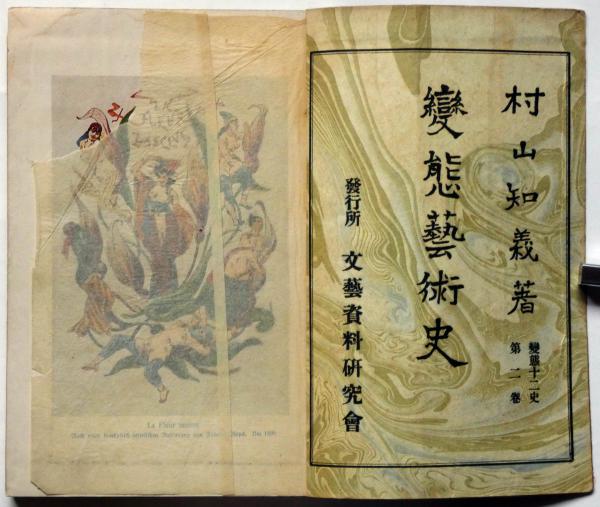 村山知義著
變態十二史
第二卷
變態藝術史
發行所 文藝資料研究會
La Fleur
Nach einer